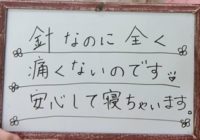 針なのに全く
痛くないのです。
安心して寝ちゃいます。